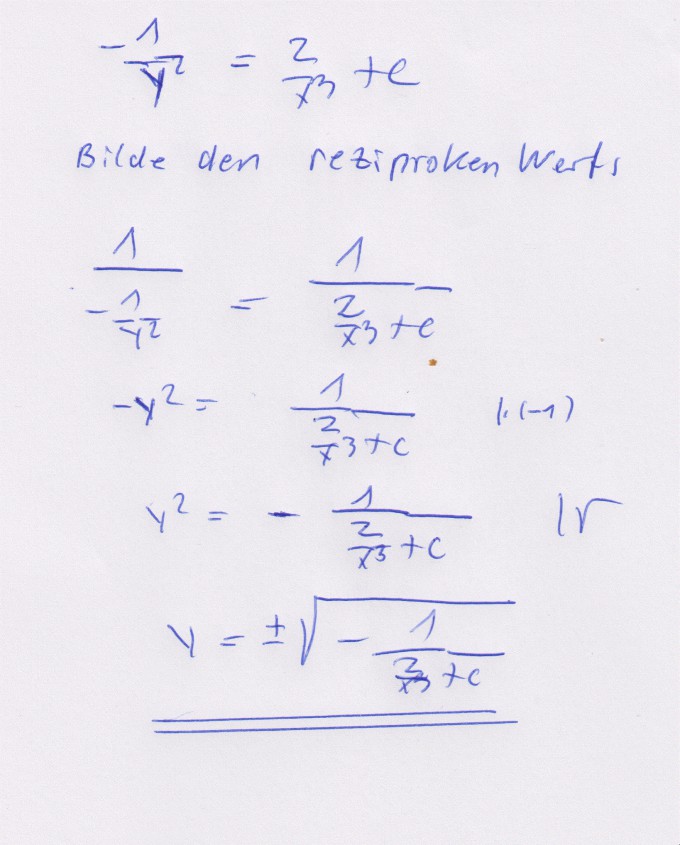 -1/y² = 2/x³ + c
Bilde den reziproken Werts
1/(-1/y²) = 1/(2/x³ + c)
-y² = 1/(2/x³ + c) |·(-1)
y² = - 1/(2/x³ + c) |√
y = ±√(- 1/(2/x³ + c))